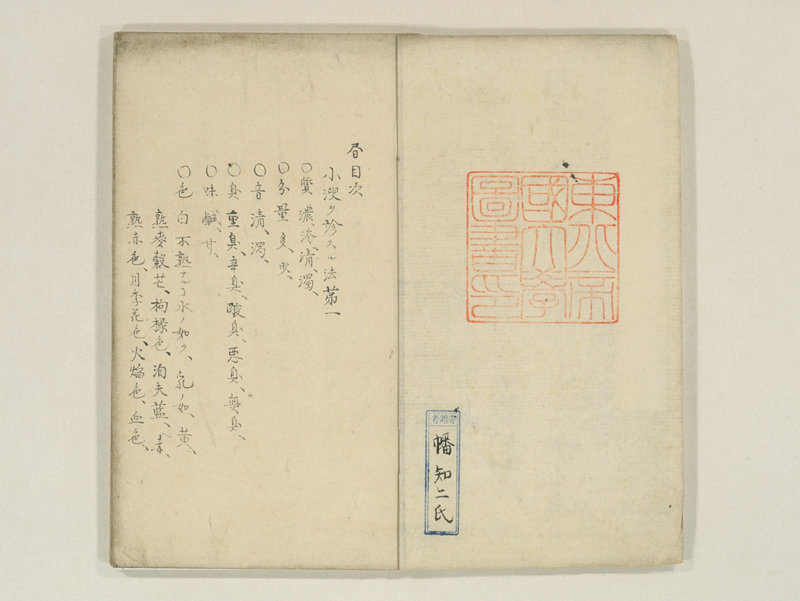 東京帝
國大學
圖書印
寄贈者
幡知二氏
目次
小溲ヲ診スル法第一
〇質 濃、淡、清、濁、
〇分量 多、少、
〇音 清、濁、
〇臭 重臭、辛臭、酸臭、悪臭、無臭、
〇味 鹹、甘、
〇色 白 不熟ニシテ水ノ如ク、乳ノ如、黄、
熟麥穀芒、枸櫞色、泊夫藍、赤、
熟赤色、月季花色、火焔色、血色、